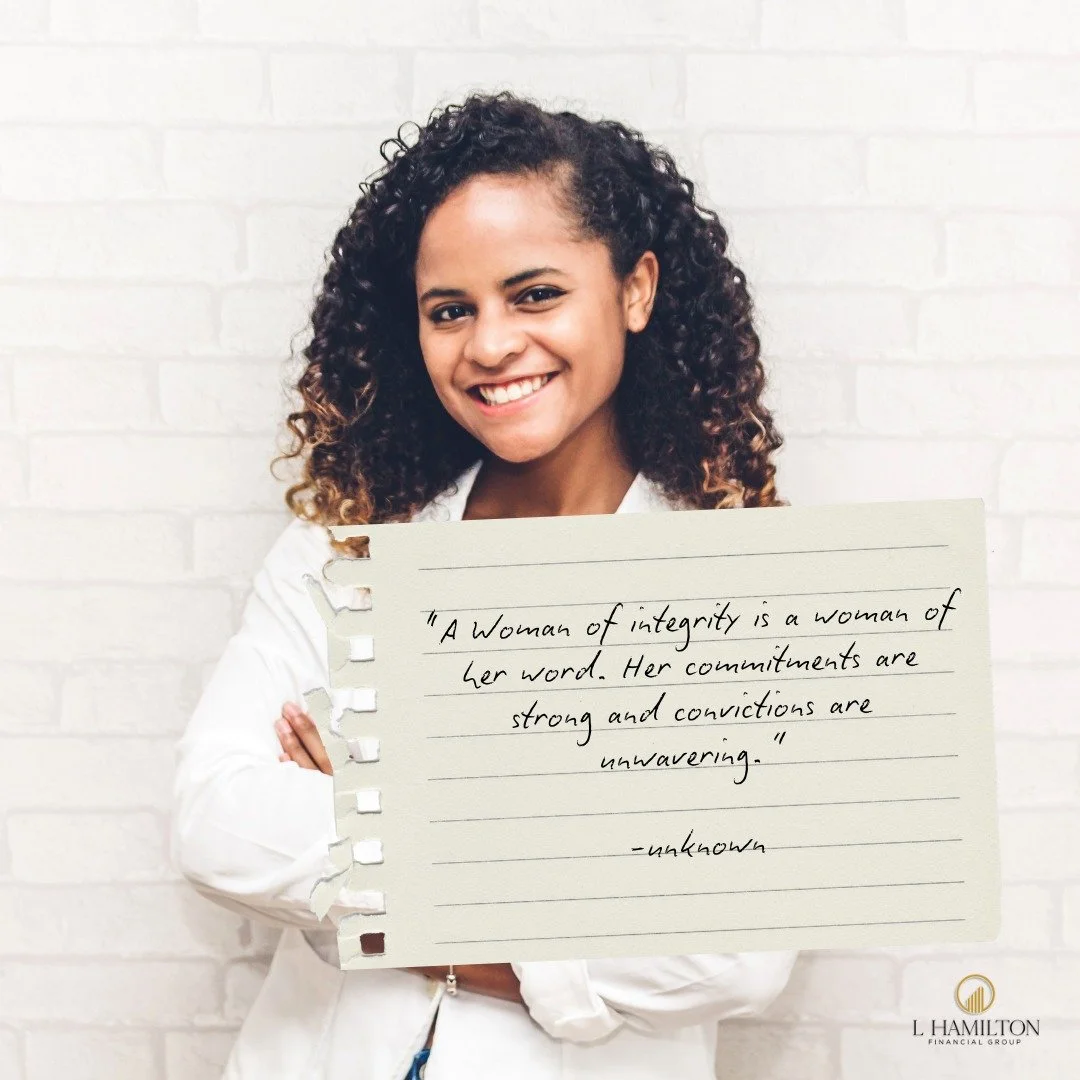 "A Woman of integrity is a woman of
her word. Her commitments are
strong and convictions are
unwavering."
-unknown
L HAMILTON
FINANCIAL GROUP